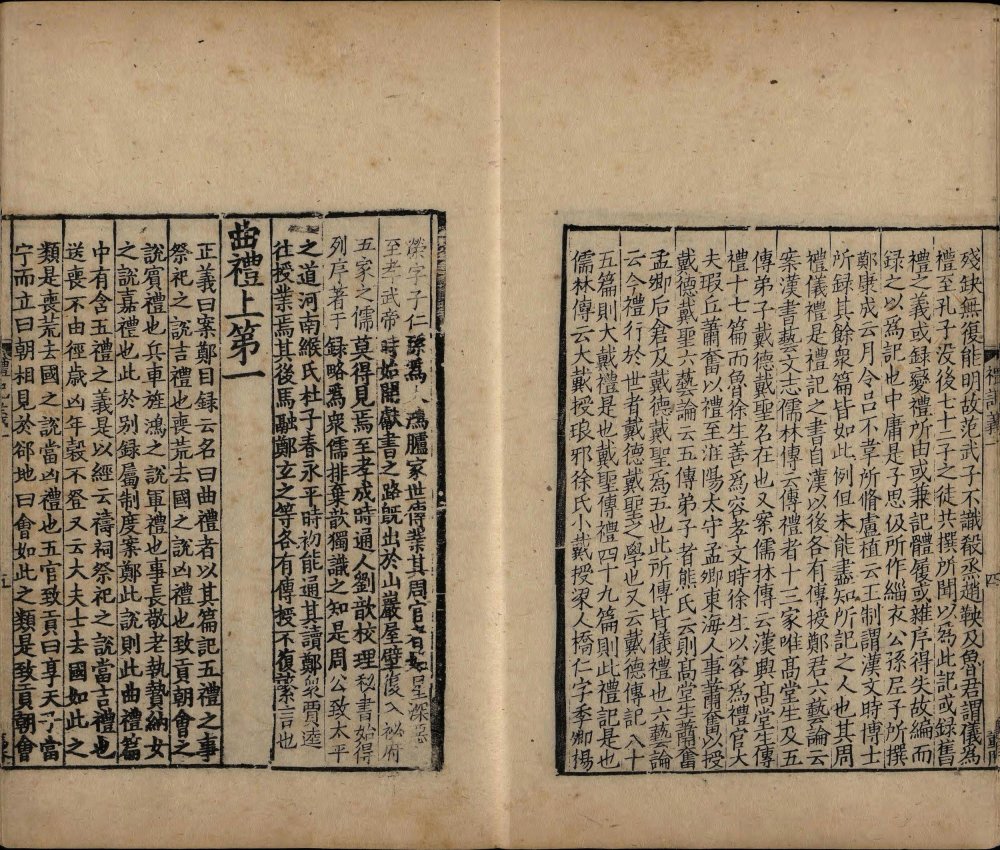 殘缺無復能明故范武子不識殽烝趙鞅及魯君謂儀為
禮至孔子沒後七十二子之徒共撰所聞以為此記或録舊
禮之義或録變禮所由或兼記體履或雜序得失故編而
録之以為記也中庸是子思伋所作緇衣公孫尼子所撰
鄭康成云月令吕不韋所脩盧植云王制謂漢文時博士
所録其餘衆篇皆如此例但未能盡知所記之人也其周
禮儀禮是禮記之書自漢以後各有傳授鄭君六藝論云
案漢書藝文志儒林傳云傳禮者十三家唯髙堂生及五
傳弟子戴德戴聖名在也又案儒林傳云漢興髙堂生傳
禮十七篇而魯徐生善為容孝文時徐生以容為禮官大
夫瑕丘蕭奮以禮至淮陽太守孟卿東海人事蕭奮以授
戴德戴聖六藝論云五傳弟子者熊氏云則髙堂生蕭奮
孟卿后倉及戴德戴聖為五也此所傳皆儀禮也六藝論
云今禮行於世者戴德戴聖之學也又云戴德傳記八十
五篇則大戴禮是也戴聖傳禮四十九篇則此禮記是也
儒林傳云大戴授琅邪徐氏小戴授梁人橋仁字季卿楊
禮記義一
四
榮字子仁孫為大鴻臚家世傳業其周官者始皇深惡
至孝武帝時始開獻書之路旣出於山巖屋壁復入祕府
五家之儒莫得見焉至孝成時通人劉歆校理秘書始得
列序著于録略為衆儒排棄歆獨識之知是周公致太平
之道河南緱氏杜子春永平時初能通其讀鄭衆賈逵
往授業焉其後馬融鄭玄之等各有傳授不復繁言也
曲禮上第一
正義曰案鄭目録云名曰曲禮者以其篇記五禮之事
祭祀之説吉禮也喪荒去國之説凶禮也致貢朝會之
説賓禮也兵車旌鴻之説軍禮也事長敬老執贄納女
之説嘉禮也此於别録屬制度案鄭此説則此曲禮篇
中有含五禮之義是以經云禱祠祭祀之説當吉禮也
送喪不由徑歳凶年穀不登又云大夫士去國如此之
類是喪荒去國之説當凶禮也五官致貢曰享天子當
宁而立曰朝相見於郤地曰會如此之類是致貢朝會
五